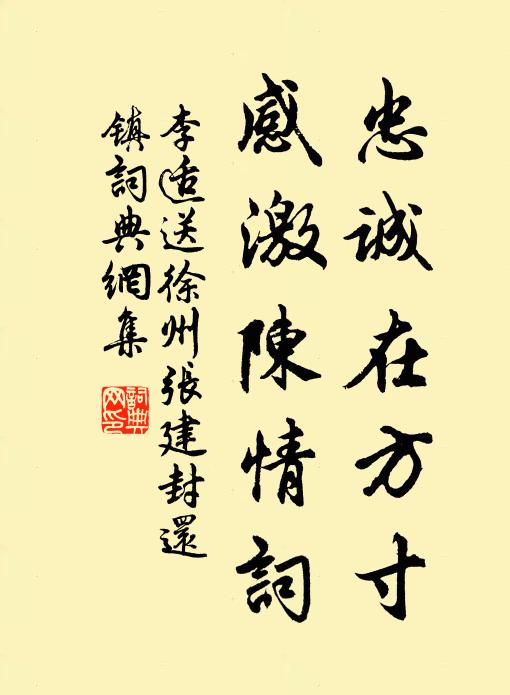 忠誠在方寸
感激陳情詞
李适送徐州張建封還
鎮詞典網集
詞典
网印